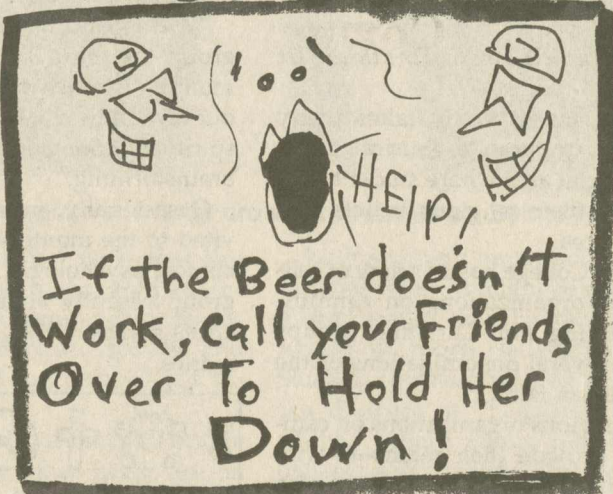 HElp!
If the Beer doesn't
Work, Call your Friends
Over To Hold Her
Down!